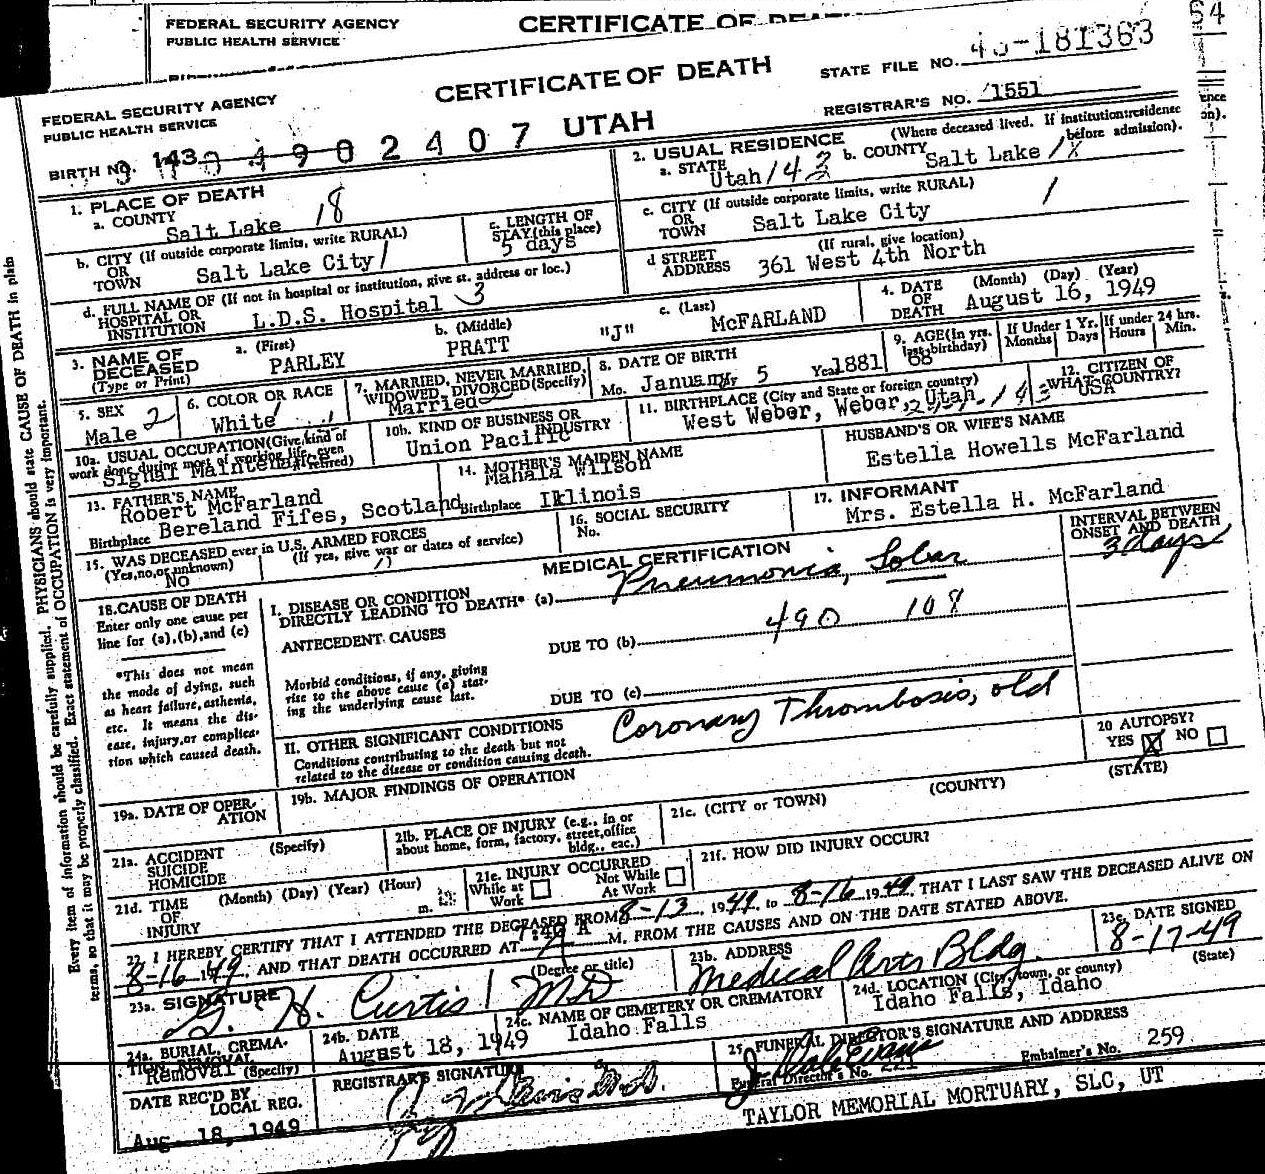 FEDERAL SECURITY AGENCY
PUBLIC HEALTH SERVICE
CERTIFICATE OF DEATH
54
FEDERAL SECURITY AGENCY
PUBLIC HEALTH SERVICE
CERTIFICATE OF DEATH
UTAH
STATE FILE NO. 181363
REGISTRAR'S NO. 1551
BIRTH NO. 143 4902407
1. PLACE OF DEATH
a. COUNTY
Salt Lake 18
b. CITY (If outside corporate limits, write RURAL)
OR
TOWN Salt Lake City 1
c. LENGTH OF
STAY (this place)
5 days
d. FULL NAME OF (If not in hospital or institution, give st. address or loc.)
HOSPITAL OR
INSTITUTION L.D.S. Hospital 3
2. USUAL RESIDENCE (Where deceased lived. If institution: residence
before admission).
a. STATE Utah 143 b. COUNTY Salt Lake
c. CITY (If outside corporate limits, write RURAL)
OR
TOWN Salt Lake City 1
d STREET (If rural, give location)
ADDRESS 361 West 4th North
3. NAME OF
DECEASED
(Type or Print)
a. (First) PARLEY
b. (Middle) PRATT "J"
c. (Last) McFARLAND
4. DATE
OF
DEATH
(Month) (Day) (Year)
August 16, 1949
5. SEX
Male 2
6. COLOR OR RACE
White
7. MARRIED, NEVER MARRIED,
WIDOWED, DIVORCED (Specify)
Married
8. DATE OF BIRTH
Mo. January Day 5 Year 1881
9. AGE (In yrs.
last birthday)
68
If Under 1 Yr.
Months Days
If under 24 hrs.
Hours Min.
10a. USUAL OCCUPATION (Give kind of
work done during most of working life, even
if retired)
Signal
10b. KIND OF BUSINESS OR
INDUSTRY
Union Pacific
11. BIRTHPLACE (City and State or foreign country)
West Weber, Weber, Utah
12. CITIZEN OF
WHAT COUNTRY?
USA
13. FATHER'S NAME
Robert McFarland
Birthplace Bereland Fifes, Scotland
14. MOTHER'S MAIDEN NAME
Mahala Wilson
Birthplace Illinois
HUSBAND'S OR WIFE'S NAME
Estella Howells McFarland
15. WAS DECEASED ever in U.S. ARMED FORCES
(Yes, no, or unknown) (If yes, give war or dates of service)
No
16. SOCIAL SECURITY
No.
17. INFORMANT
Mrs. Estella H. McFarland
MEDICAL CERTIFICATION
INTERVAL BETWEEN
ONSET AND DEATH
18. CAUSE OF DEATH
Enter only one cause per
line for (a), (b), and (c)
*This does not mean
the mode of dying, such
as heart failure, asthenia,
etc. It means the dis-
ease, injury, or complica-
tion which caused death.
I. DISEASE OR CONDITION
DIRECTLY LEADING TO DEATH* (a) Pneumonia, Lobar
3 days
ANTECEDENT CAUSES
490 108
DUE TO (b)
Morbid conditions, if any, giving
rise to the above cause (a) stat-
ing the underlying cause last.
DUE TO (c)
II. OTHER SIGNIFICANT CONDITIONS
Conditions contributing to the death but not
related to the disease or condition causing death.
Coronary Thrombosis, old
20 AUTOPSY?
YES X NO
19a. DATE OF OPER-
ATION
19b. MAJOR FINDINGS OF OPERATION
21a. ACCIDENT (Specify)
SUICIDE
HOMICIDE
21b. PLACE OF INJURY (e.g., in or
about home, form, factory, street, office
bldg., eac.)
21c. (CITY or TOWN) (COUNTY) (STATE)
21d. TIME (Month) (Day) (Year) (Hour)
OF
INJURY m.
21e. INJURY OCCURRED
While at Work
Not While At Work
21f. HOW DID INJURY OCCUR?
22. I HEREBY CERTIFY THAT I ATTENDED THE DECEASED FROM 8-13 1949 to 8-16 1949 THAT I LAST SAW THE DECEASED ALIVE ON
8-16 1949 AND THAT DEATH OCCURRED AT A M. FROM THE CAUSES AND ON THE DATE STATED ABOVE.
23a. SIGNATURE (Degree or title)
H. Curtis MD
23b. ADDRESS
Medical Arts Bldg.
23c. DATE SIGNED
8-17-49
24a. BURIAL, CREMA-
TION REMOVAL
Removal (Specify)
24b. DATE
August 18, 1949
24c. NAME OF CEMETERY OR CREMATORY
Idaho Falls
24d. LOCATION (City, town, or county) (State)
Idaho Falls, Idaho
DATE REC'D BY
LOCAL REG.
Aug 18, 1949
REGISTRAR'S SIGNATURE
25. FUNERAL DIRECTOR'S SIGNATURE AND ADDRESS
J. Dale Evans
Funeral Director's No. 221
Embalmer's No. 259
TAYLOR MEMORIAL MORTUARY, SLC, UT
Every item of information should be carefully supplied. PHYSICIANS should state CAUSE OF DEATH in plain
terms, so that it may be properly classified. Exact statement of OCCUPATION is very important.